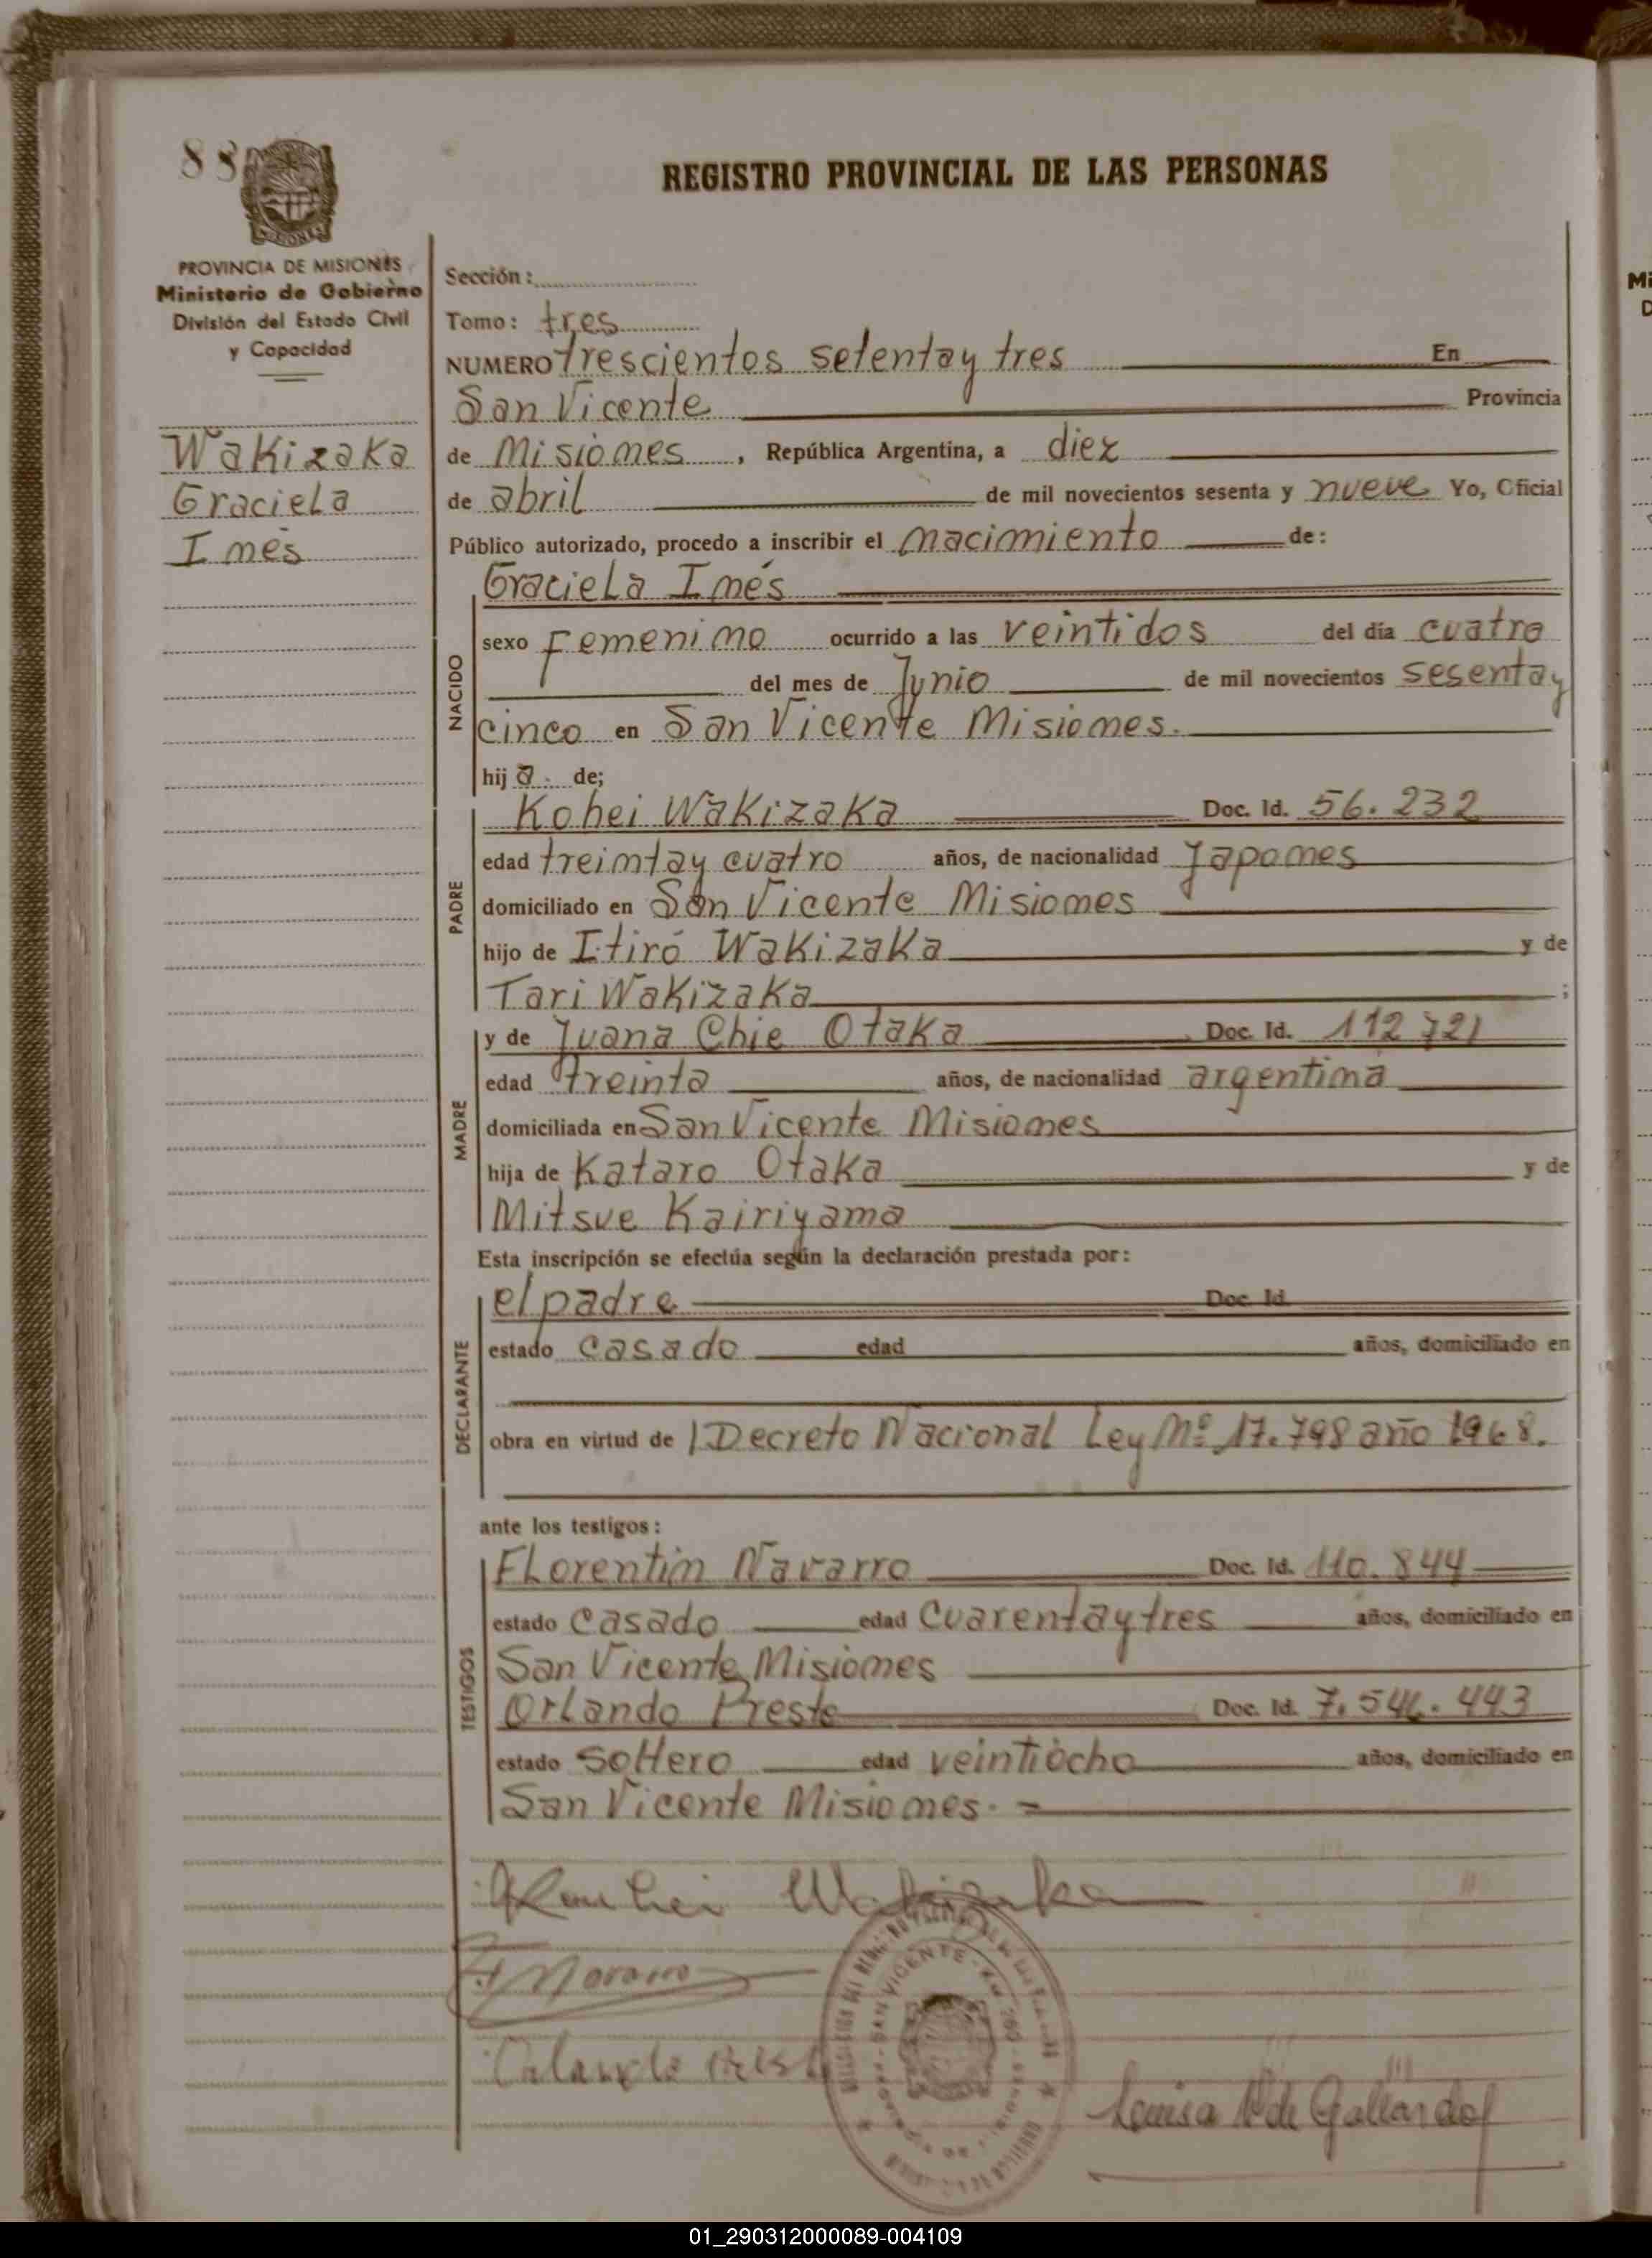 88
REGISTRO PROVINCIAL DE LAS PERSONAS
PROVINCIA DE MISIONES
Ministerio de Gobierno
División del Estado Civil
y Capacidad
Wakizaka
Graciela
Inés
Sección:
Tomo: tres
NUMERO trescientos setenta y tres En
San Vicente Provincia
de Misiones, República Argentina, a diez
de abril de mil novecientos sesenta y nueve Yo, Oficial
Público autorizado, procedo a inscribir el nacimiento de:
NACIDO
Graciela Inés
sexo Femenino ocurrido a las veintidos del día cuatro
del mes de Junio de mil novecientos sesenta y
cinco en San Vicente Misiones.
hija. de;
PADRE
Kohei Wakizaka Doc. Id. 56.232
edad treinta y cuatro años, de nacionalidad Japones
domiciliado en San Vicente Misiones
hijo de Itiró Wakizaka y de
Tari Wakizaka ;
MADRE
y de Juana Chie Otaka Doc. Id. 112721
edad treinta años, de nacionalidad argentina
domiciliada en San Vicente Misiones
hija de Kataro Otaka y de
Mitsue Kairiyama
Esta inscripción se efectúa según la declaración prestada por:
DECLARANTE
el padre Doc. Id.
estado casado edad años, domiciliado en
obra en virtud de Decreto Nacional Ley Nº 17.798 año 1968.
ante los testigos:
TESTIGOS
Florentin Navarro Doc. Id. 110.844
estado casado edad Cuarenta y tres años, domiciliado en
San Vicente Misiones
Orlando Preste Doc. Id. 7.546.443
estado soltero edad veintiocho años, domiciliado en
San Vicente Misiones. =
Wakizaka
F Navarro
Orlando
SAN VICENTE
Louisa de Gallardo
01_290312000089-004109